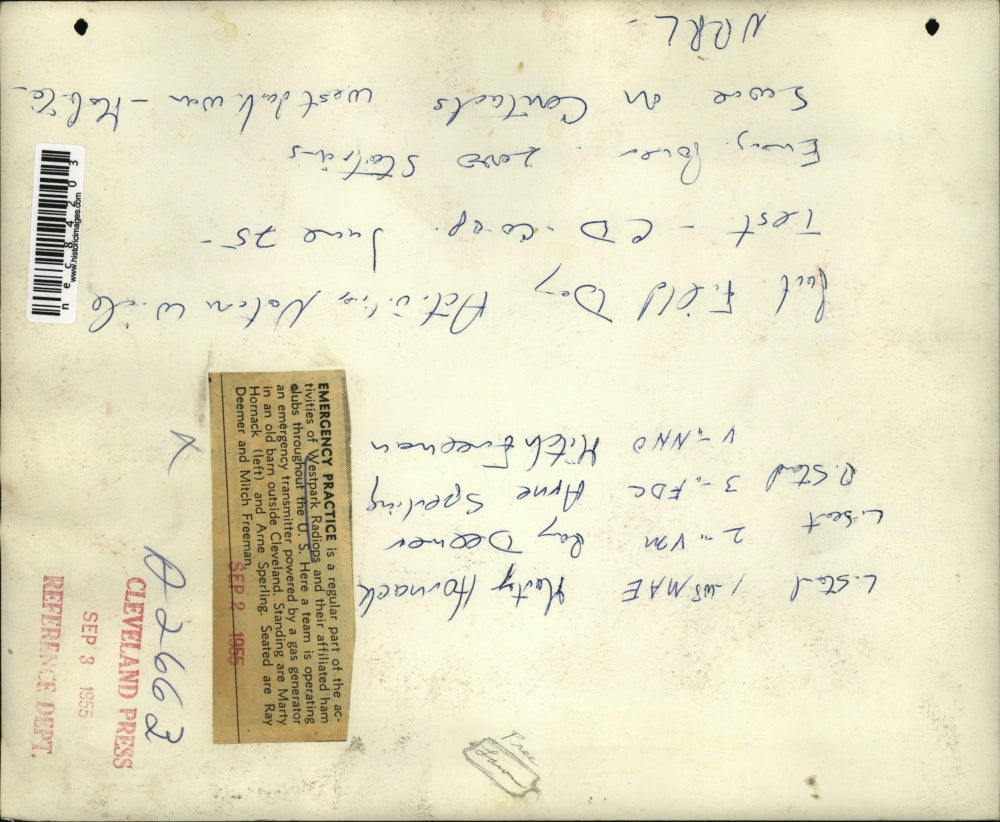 L. Stand 1 W8MAE Marty Hornack
L. Seat 2 " VM Ray Deemer
R. Stand 3 - FDC Arne Sperling
V - NNO Mitch Freeman
Field Day Activities Nation Wide
Test - CD - co-op. June 25 -
Emerg. Power. 2000 Stations
on Contacts West
EMERGENCY PRACTICE is a regular part of the ac-
tivities of Westpark Radiops and their affiliated ham
clubs throughout the U. S. Here a team is operating
an emergency transmitter powered by a gas generator
in an old barn outside Cleveland. Standing are Marty
Hornack (left) and Arne Sperling. Seated are Ray
Deemer and Mitch Freeman.
SEP 2 1955
X
A2663
CLEVELAND PRESS
SEP 3 1955
REFERENCE DEPT.
nec84203
www.historicimages.com